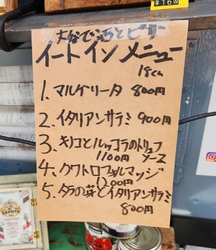 イートインメニュー
18cm
1. マルゲリータ 800円
2. イタリアンサラミ 900円
3. キノコとルッコラのトリュフ
1100円 ソース
4. クワトロフォルマッジ
1200円
5. タラの芽とイタリアンサラミ
800円